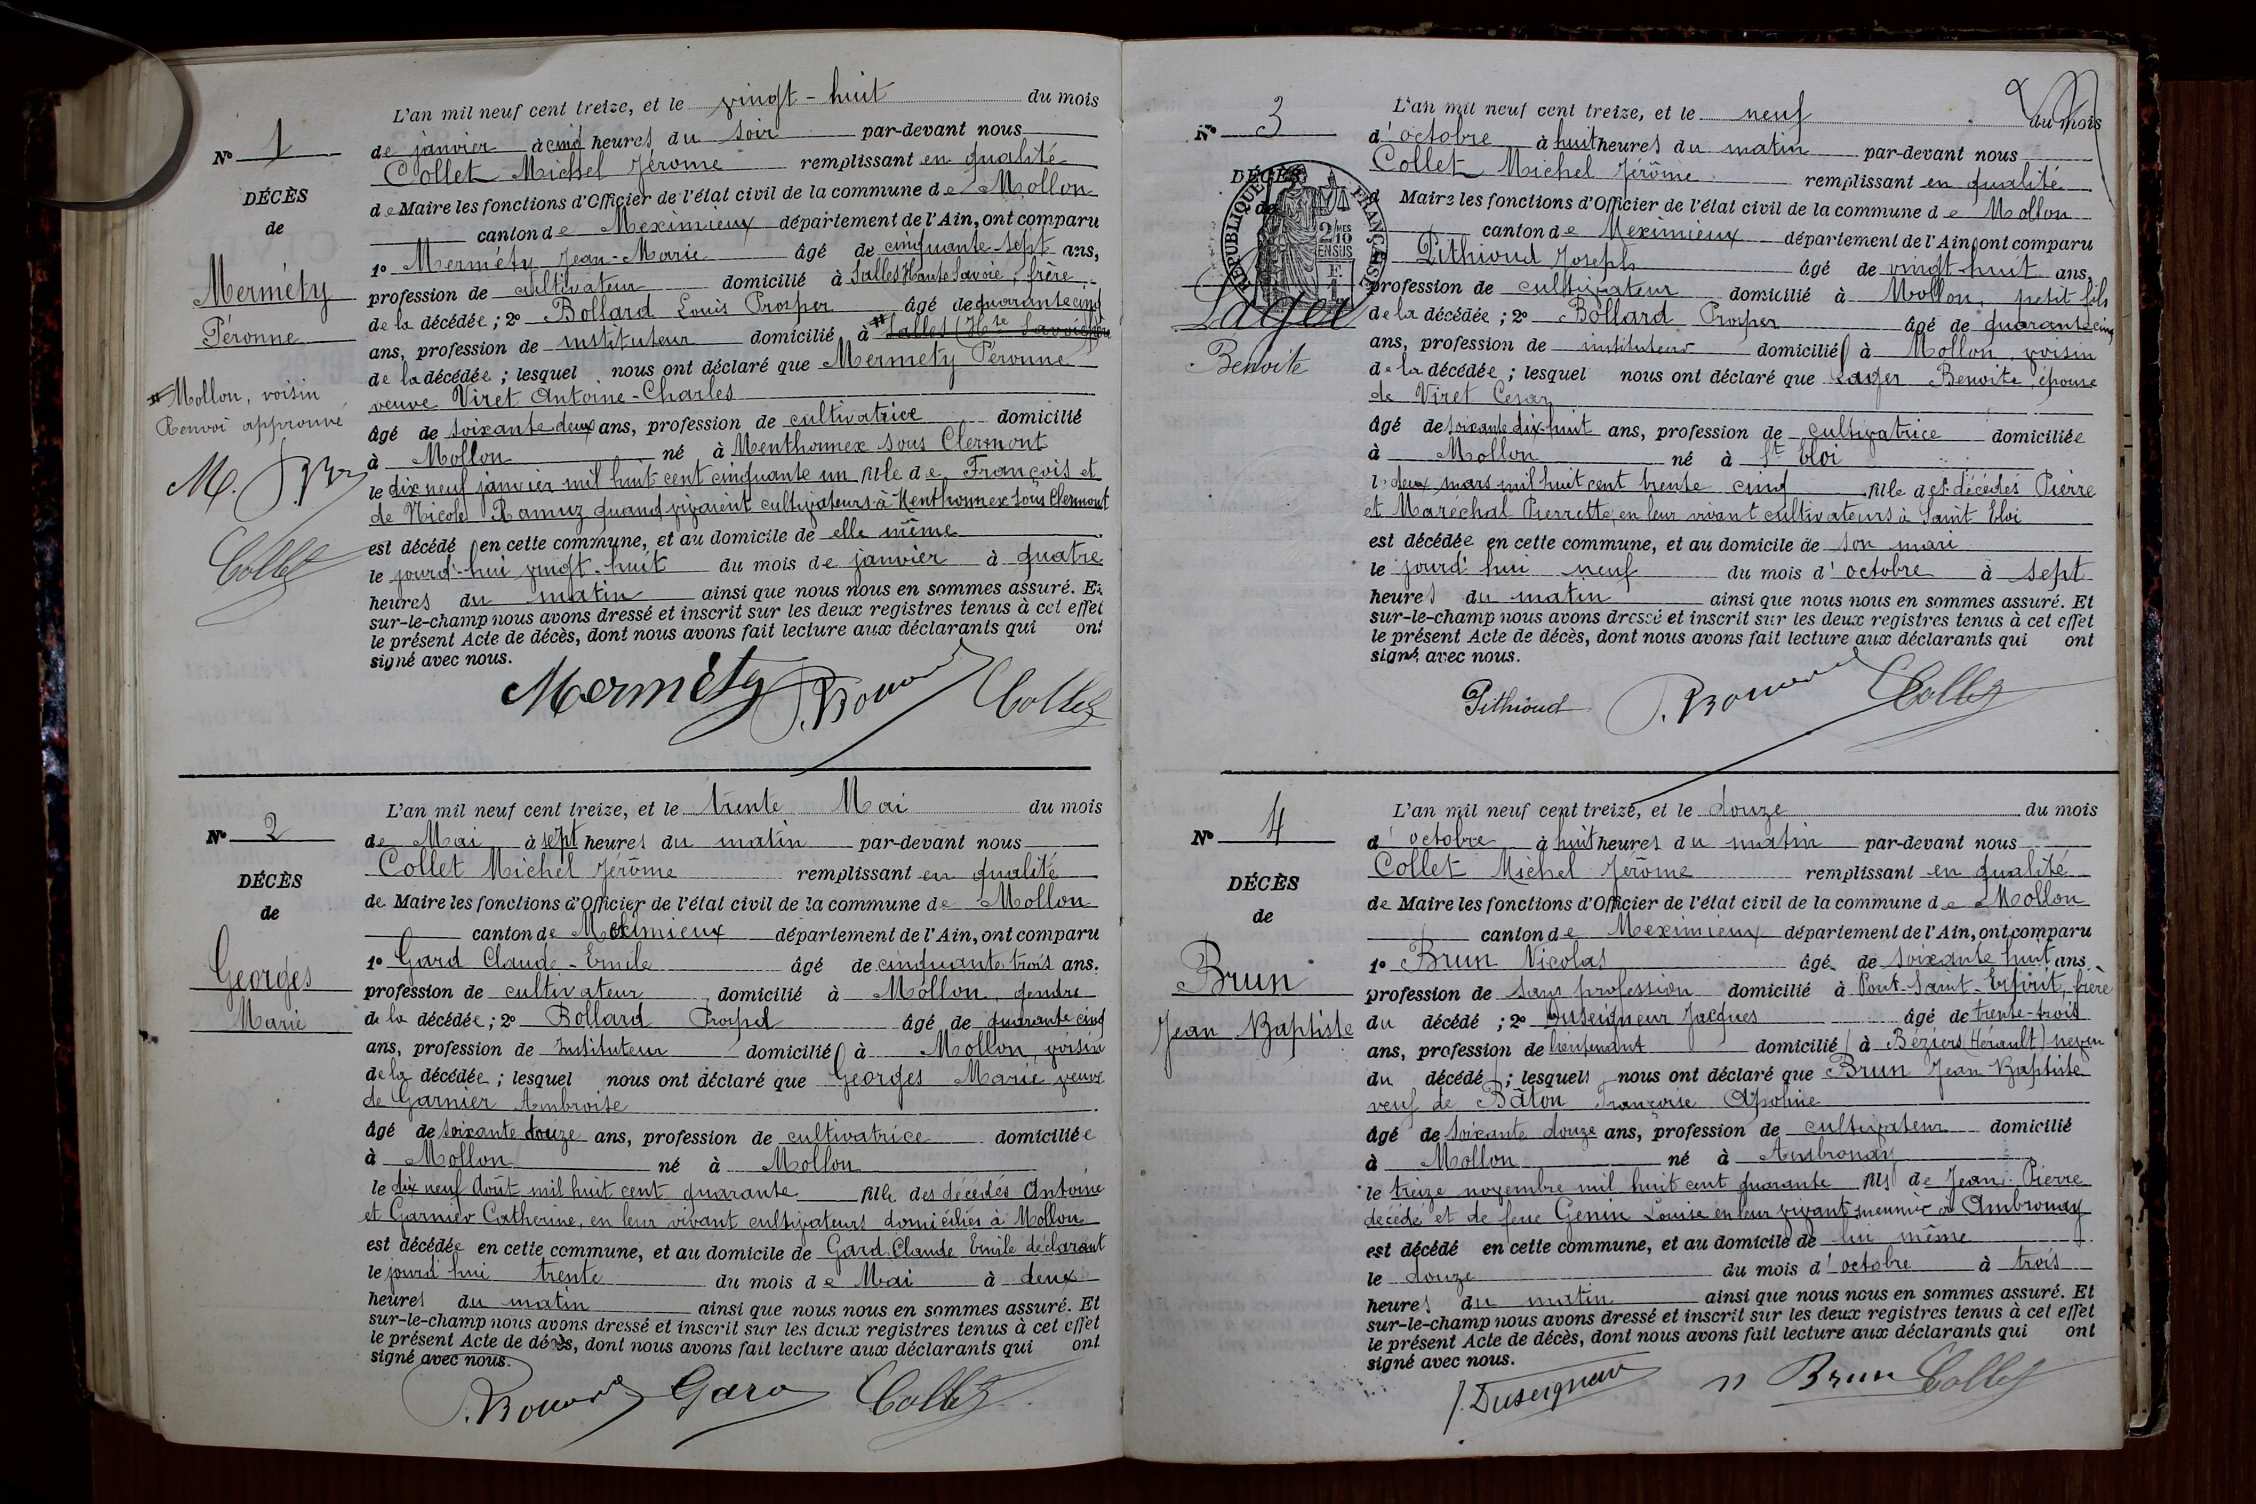 L'an mil neuf cent treize, et le vingt-huit du mois
de janvier à cinq heures du soir par-devant nous
Collet Michel Jérome remplissant en qualité
de Maire les fonctions d'Officier de l'état civil de la commune de Mollon
canton de Meximieux département de l'Ain, ont comparu
1o Merméty Jean-Marie âgé de cinquante sept ans,
profession de cultivateur domicilié à Salles Haute Savoie, frère
de la décédée ; 2o Bollard Louis Prosper âgé de quarante cinq
ans, profession de instituteur domicilié à # Salles (Hte Savoie)
de la décédée ; lesquel nous ont déclaré que Mermety Péronne
veuve Viret Antoine-Charles
âgé de soixante deux ans, profession de cultivatrice domicilié
à Mollon né à Menthonnex sous Clermont
le dix neuf janvier mil huit cent cinquante un fille de François et
de Nicole Ramuz quand vivaient cultivateurs à Menthonnex sous Clermont
est décédé en cette commune, et au domicile de elle même
le jourd'hui vingt-huit du mois de janvier à quatre
heures du matin ainsi que nous nous en sommes assuré. Et
sur-le-champ nous avons dressé et inscrit sur les deux registres tenus à cet effet
le présent Acte de décès, dont nous avons fait lecture aux déclarants qui ont
signé avec nous.
Merméty Collet
No 1
DÉCÈS
de
Merméty
Péronne
# Mollon, voisin
Renvoi approuvé
M.
Collet
L'an mil neuf cent treize, et le trente Mai du mois
de Mai à sept heures du matin par-devant nous
Collet Michel Jérôme remplissant en qualité
de Maire les fonctions d'Officier de l'état civil de la commune de Mollon
canton de Meximieux département de l'Ain, ont comparu
1o Gard Claude-Emile âgé de cinquante trois ans.
profession de cultivateur domicilié à Mollon, gendre
de la décédée ; 2o Bollard Prosper âgé de quarante cinq
ans, profession de Instituteur domicilié à Mollon, voisin
de la décédée ; lesquel nous ont déclaré que Georges Marie veuve
de Garnier Ambroise
âgé de soixante douze ans, profession de cultivatrice domiciliée
à Mollon né à Mollon
le dix neuf Août mil huit cent quarante fille des décédés Antoine
et Garnier Catherine, en leur vivant cultivateurs domiciliés à Mollon
est décédée en cette commune, et au domicile de Gard Claude Emile déclarant
le jourd'hui trente du mois de Mai à deux
heures du matin ainsi que nous nous en sommes assuré. Et
sur-le-champ nous avons dressé et inscrit sur les deux registres tenus à cet effet
le présent Acte de décès, dont nous avons fait lecture aux déclarants qui ont
signé avec nous.
Gard Collet
No 2
DÉCÈS
de
Georges
Marie
L'an mil neuf cent treize, et le neuf du mois
d'octobre à huit heures du matin par-devant nous
Collet Michel Jérôme remplissant en qualité
d Maire les fonctions d'Officier de l'état civil de la commune de Mollon
canton de Meximieux département de l'Ain, ont comparu
Pithioud Joseph âgé de vingt-huit ans,
profession de cultivateur domicilié à Mollon, petit fils
de la décédée ; 2o Bollard Prosper âgé de quarante cinq
ans, profession de instituteur domicilié à Mollon, voisin
de la décédée ; lesquel nous ont déclaré que Lager Benoite, épouse
de Viret César
âgé de soixante dix-huit ans, profession de cultivatrice domiciliée
à Mollon né à St Eloi
le deux mars mil huit cent trente cinq fille des décédés Pierre
et Maréchal Pierrette, en leur vivant cultivateurs à Saint Eloi
est décédée en cette commune, et au domicile de son mari
le jourd'hui neuf du mois d'octobre à sept
heures du matin ainsi que nous nous en sommes assuré. Et
sur-le-champ nous avons dressé et inscrit sur les deux registres tenus à cet effet
le présent Acte de décès, dont nous avons fait lecture aux déclarants qui ont
signé avec nous.
Pithioud Collet
No 3
DÉCÈS
de
RÉPUBLIQUE FRANÇAISE
2/10 MES
EN SUS
Lager
Benoite
L'an mil neuf cent treize, et le douze du mois
d'octobre à huit heures du matin par-devant nous
Collet Michel Jérôme remplissant en qualité
de Maire les fonctions d'Officier de l'état civil de la commune de Mollon
canton de Meximieux département de l'Ain, ont comparu
1o Brun Nicolas âgé de soixante huit ans
profession de sans profession domicilié à Pont-Saint-Esprit, frère
du décédé ; 2o Duseigneur Jacques âgé de trente-trois
ans, profession de lieutenant domicilié à Béziers (Hérault) neveu
du décédé ; lesquels nous ont déclaré que Brun Jean Baptiste
veuf de Bâton Françoise Apoline
âgé de soixante douze ans, profession de cultivateur domicilié
à Mollon né à Ambronay
le treize novembre mil huit cent quarante fils de Jean-Pierre
décédé et de feue Genin Louise en leur vivant meunier à Ambronay
est décédé en cette commune, et au domicile de lui même
le douze du mois d'octobre à trois
heures du matin ainsi que nous nous en sommes assuré. Et
sur-le-champ nous avons dressé et inscrit sur les deux registres tenus à cet effet
le présent Acte de décès, dont nous avons fait lecture aux déclarants qui ont
signé avec nous.
J. Duseigneur n Brun Collet
No 4
DÉCÈS
de
Brun
Jean Baptiste